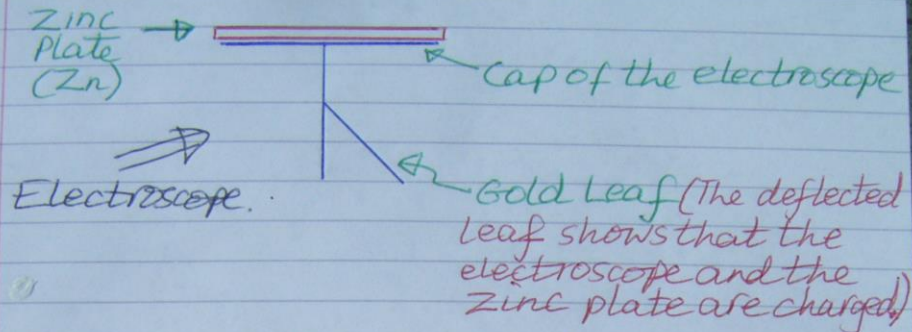 Zinc
Plate
(Zn)
Cap of the electroscope
Electroscope.
Gold Leaf (The deflected
leaf shows that the
electroscope and the
Zinc plate are charged.)